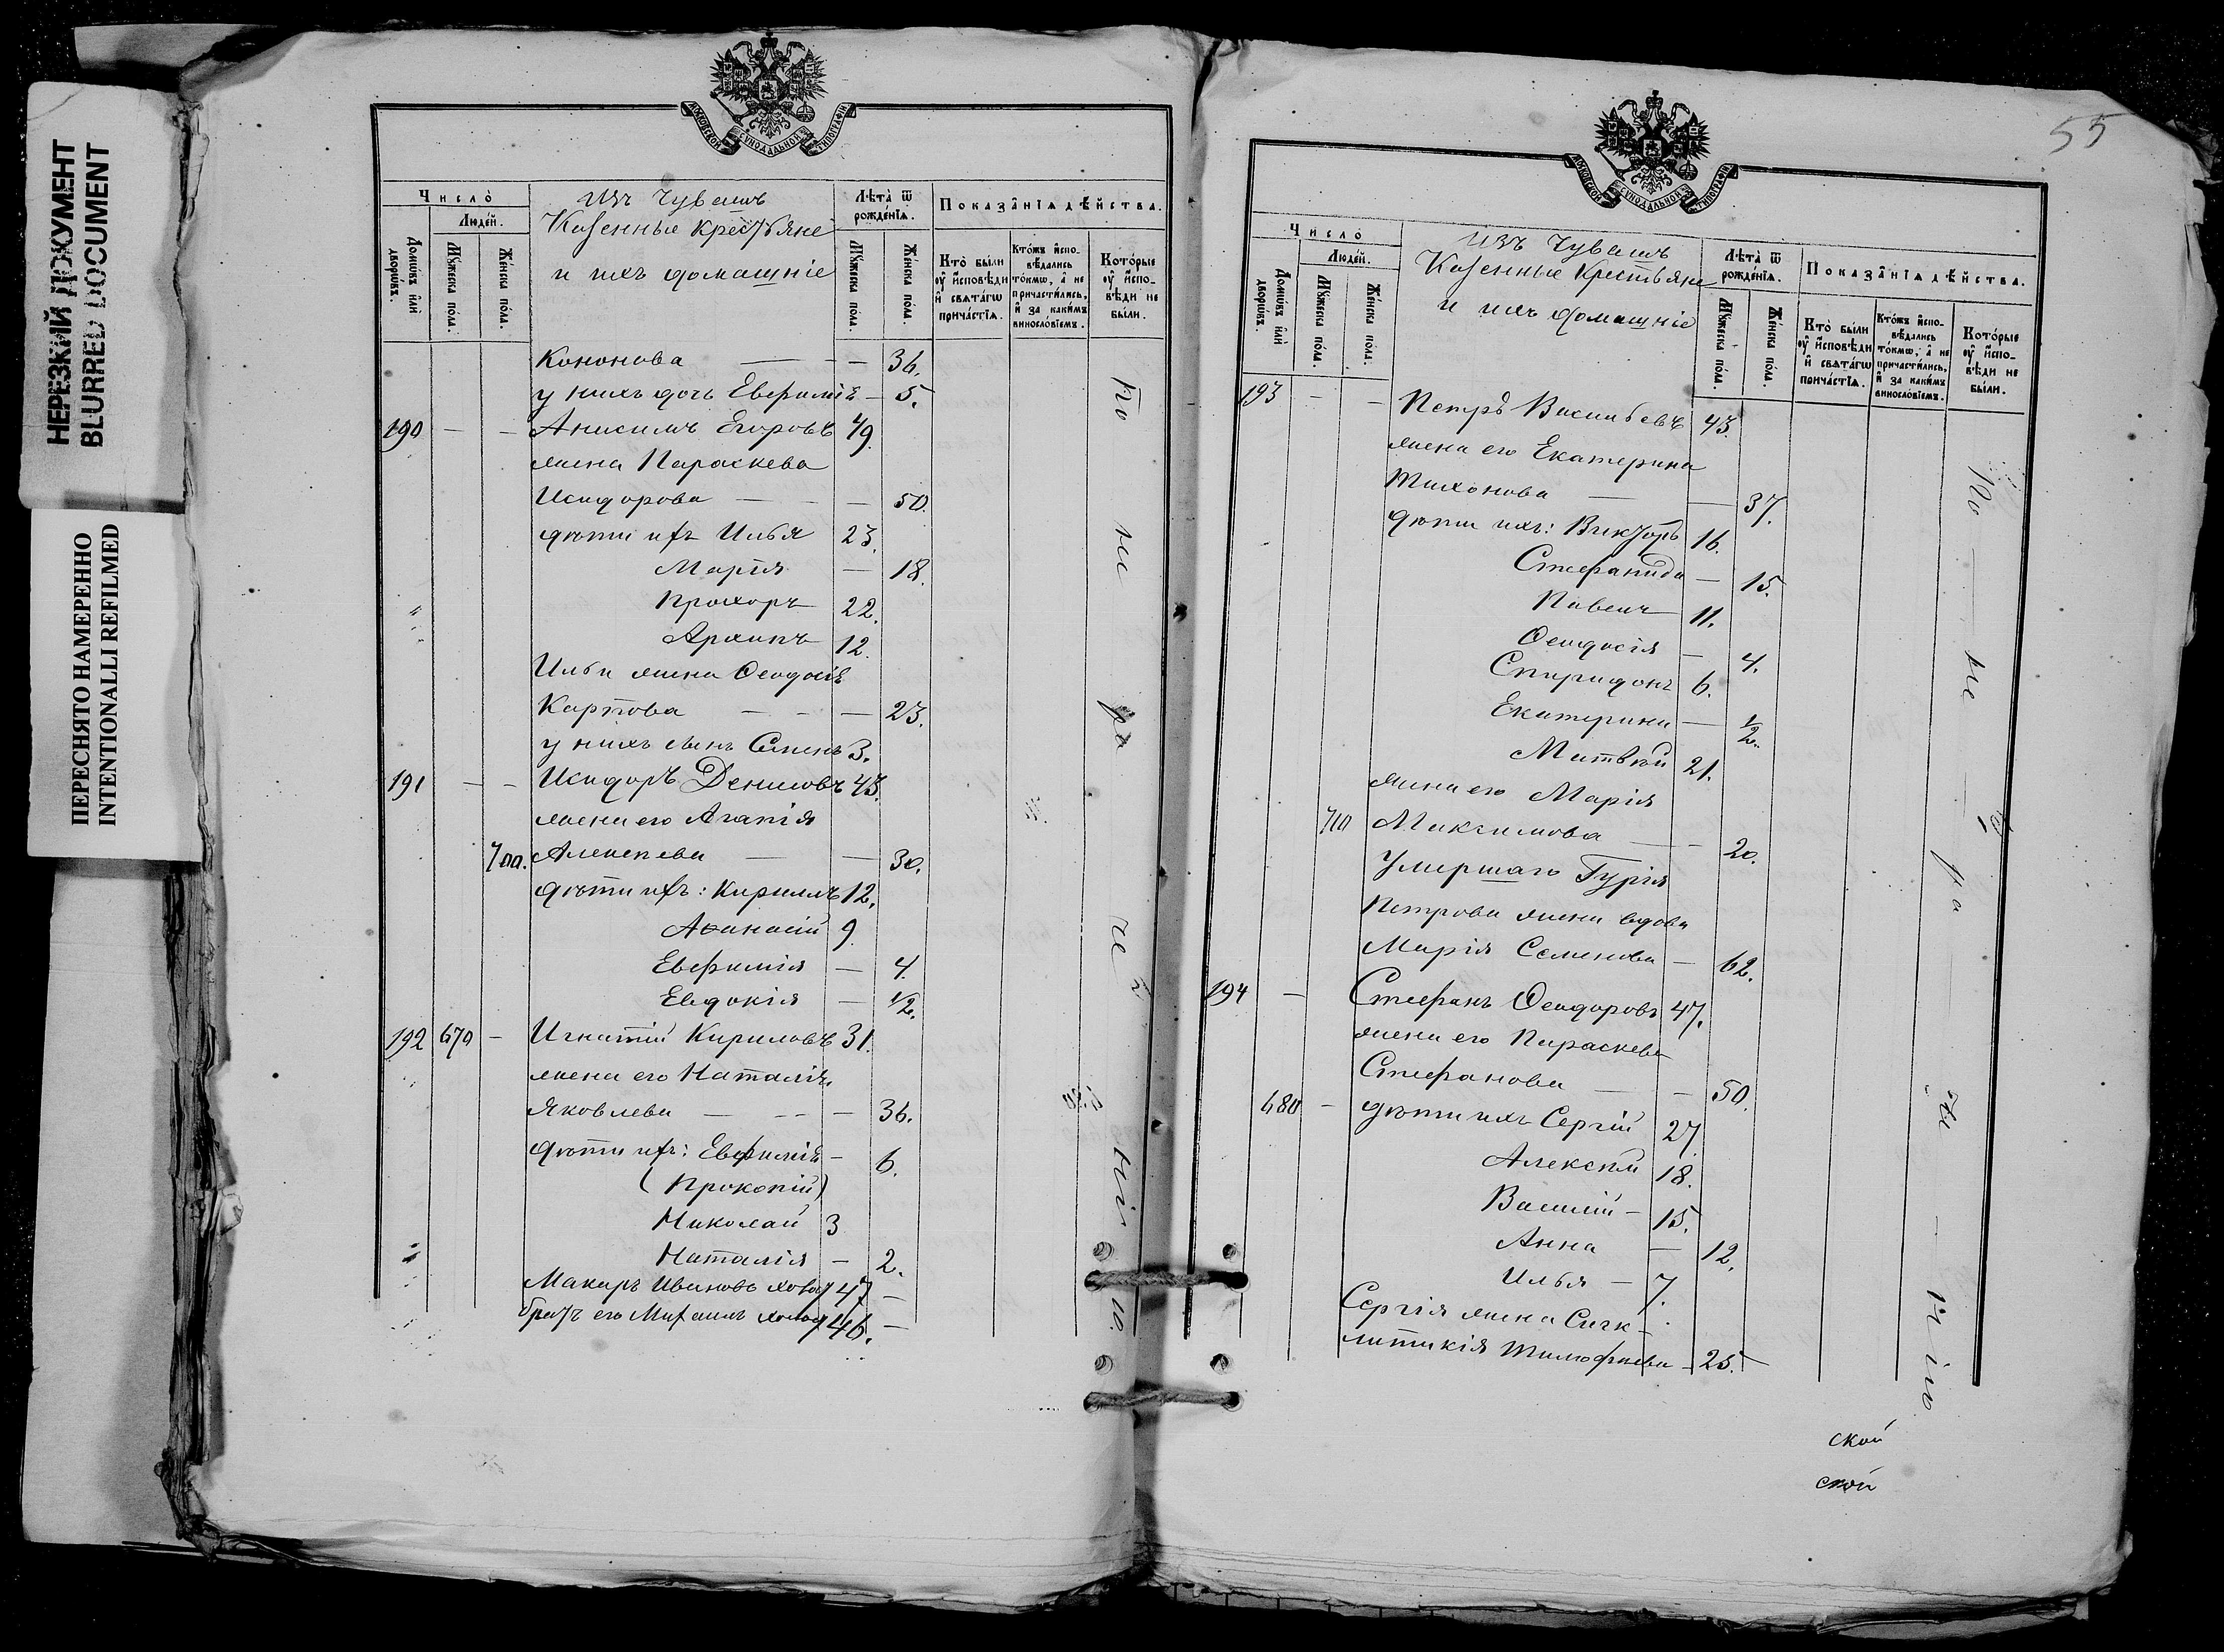 НЕРЕЗКИЙ ДОКУМЕНТ
BLURRED DOCUMENT
ПЕРЕСНЯТО НАМЕРЕННО
INTENTIONALLI REFILMED
МОСКОВСКОЙ СѴНОДАЛЬНОЙ ТИПОГРАФІИ
Число̀
Людей.
Домѡвъ и҆лѝ дворѡвъ.
Мꙋжеска пола.
Женска пола.
Изъ Чувашъ
Казенные крестьяне
и ихъ домашніе
Лѣта̀ ѿ рожденїѧ.
Мꙋжеска пола.
Женска пола.
Показанїѧ дѣйства.
Кто̀ были ᲂу҆ и҆сповѣди и҆ свѧтагѡ причастїѧ.
Ктожъ и҆сповѣдались токмѡ, а҆ не причастились, и҆ за какимъ винословїемъ.
Которые ᲂу҆ и҆сповѣди не были.
Кононова — — 36.
у нихъ дочь Евфимія — 5.
190 — — Анисимъ Егоровъ 49.
жена Параскева
Исидорова — — 50.
дѣти ихъ Илья 23.
Марія — 18.
Прохоръ 22.
Архипъ 12.
Ильи жена Ѳеодосія
Карпова — — — 23.
у нихъ сынъ Семенъ 3.
191 — — Исидоръ Денисовъ 43.
жена его Агапія
700. Алексѣева — — 30.
дѣти ихъ: Кириллъ 12.
Аѳанасій 9.
Евфимія — 4.
Евдокія — 1/2.
192 670 — Игнатій Кириловъ 31.
жена его Наталія
Яковлева — -- — 36.
дѣти ихъ: Евфимія — 6.
(Прокопій)
Николай 3
Наталія — 2.
Макаръ Ивановъ холост 47 —
братъ его Михаилъ холост 46. —
По не ра че нію.
55
МОСКОВСКОЙ СѴНОДАЛЬНОЙ ТИПОГРАФІИ
Число
Людей.
Домѡвъ и҆лѝ дворѡвъ.
Мꙋжеска пола.
Женска пола.
Изъ Чувашъ
Казенные крестьяне
и ихъ домашніе
Лѣта̀ ѿ рожденїѧ.
Мꙋжеска пола.
Женска пола.
Показанїѧ дѣйства.
Кто̀ были ᲂу҆ и҆сповѣди и҆ свѧтагѡ причастїѧ.
Ктожъ и҆сповѣдались токмѡ, а҆ не причастились, и҆ за какимъ винословїемъ.
Которые ᲂу҆ и҆сповѣди не были.
193 — — Петръ Васильевъ 43.
жена его Екатерина
Тихонова — — 37.
дѣти ихъ: Викторъ 16.
Стефанида — 15.
Павелъ 11.
Ѳеодосія — 4.
Спиридонъ 6.
Екатерина — 1/2.
Матвѣй 21.
жена его Марія
710 Максимова — — 20.
Умершаго Гурія
Петрова жена вдова
Марія Семенова — 62.
194 — Стефанъ Ѳеодоровъ 47.
жена его Параскева
Стефанова — — 50.
680 — дѣти ихъ Сергій 27.
Алексѣй 18.
Василій — 15.
Анна — 12.
Илья — 7.
Сергія жена Синк-
литикія Тимофѣева — 25. —
По — не — ра — че — нію.
ской
ской